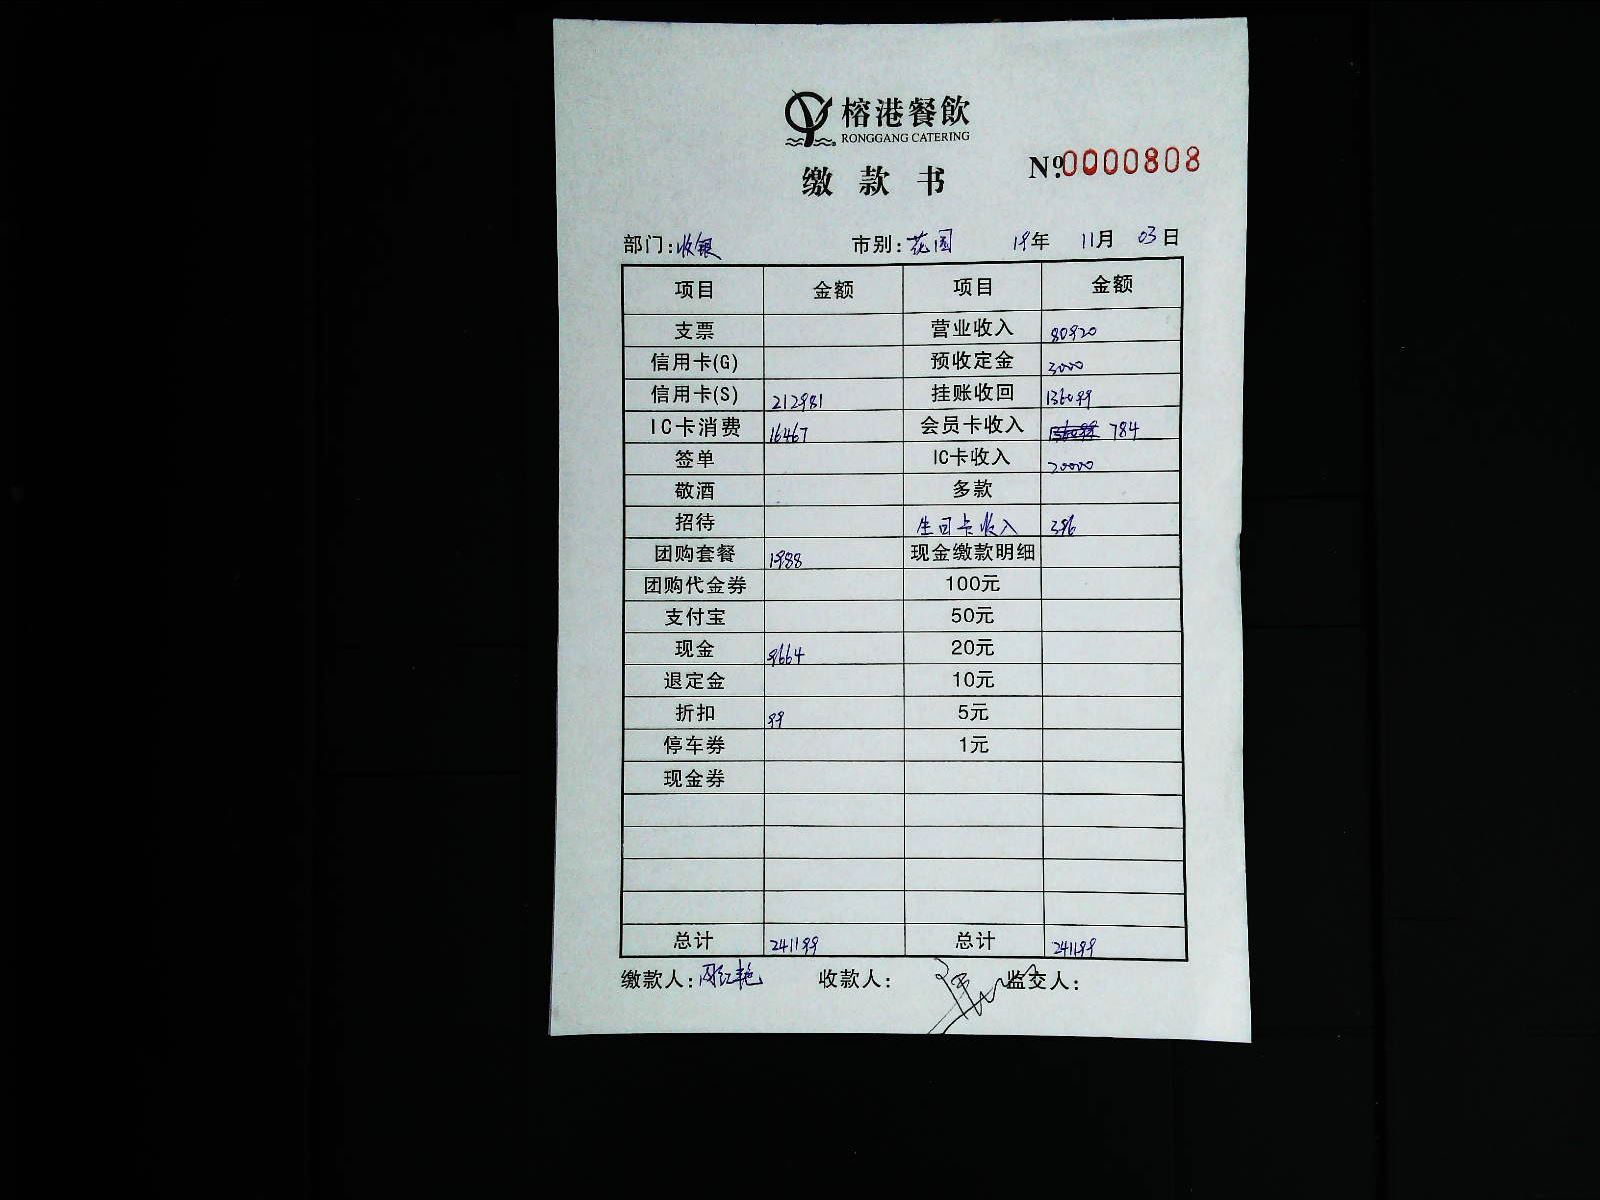 榕港餐飲
RONGGANG CATERING
缴款书
№0000808
部门:收银 市别:花园 19年 11月 03日
项目 金额 项目 金额
支票 营业收入 80920
信用卡(G) 预收定金 3000
信用卡(S) 212981 挂账收回 136099
IC卡消费 16467 会员卡收入 784
签单 IC卡收入 20000
敬酒 多款
招待 生日卡收入 396
团购套餐 1988 现金缴款明细
团购代金券 100元
支付宝 50元
现金 9664 20元
退定金 10元
折扣 99 5元
停车券 1元
现金券
总计 241199 总计 241199
缴款人:周红艳 收款人: 监交人: